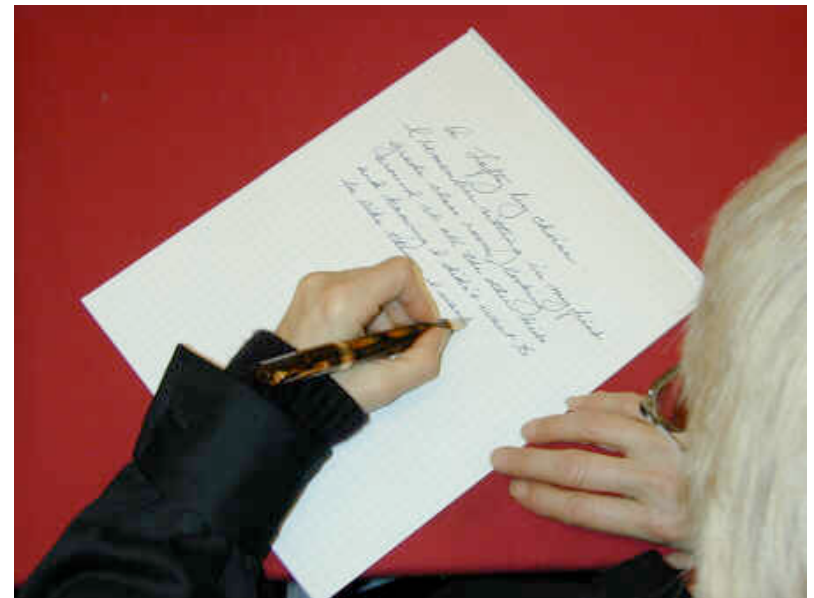 a Lefty by choice
I remember sitting in my first
grade class room looking
around at all the other kids
and knowing I didn't want to
be like them I